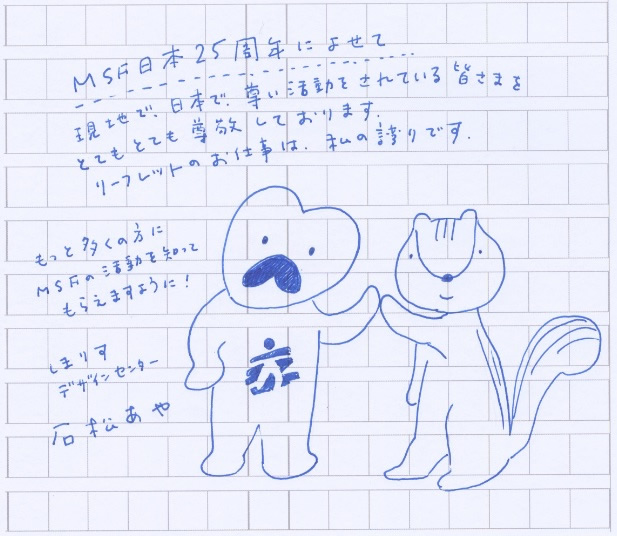 MSF日本25周年によせて
現地で、日本で、尊い活動をされている皆さまを
とてもとても尊敬しております。
リーフレットのお仕事は、私の誇りです。
もっと多くの方に
MSFの活動を知って
もらえますように!
しまりす
デザインセンター
石松あや